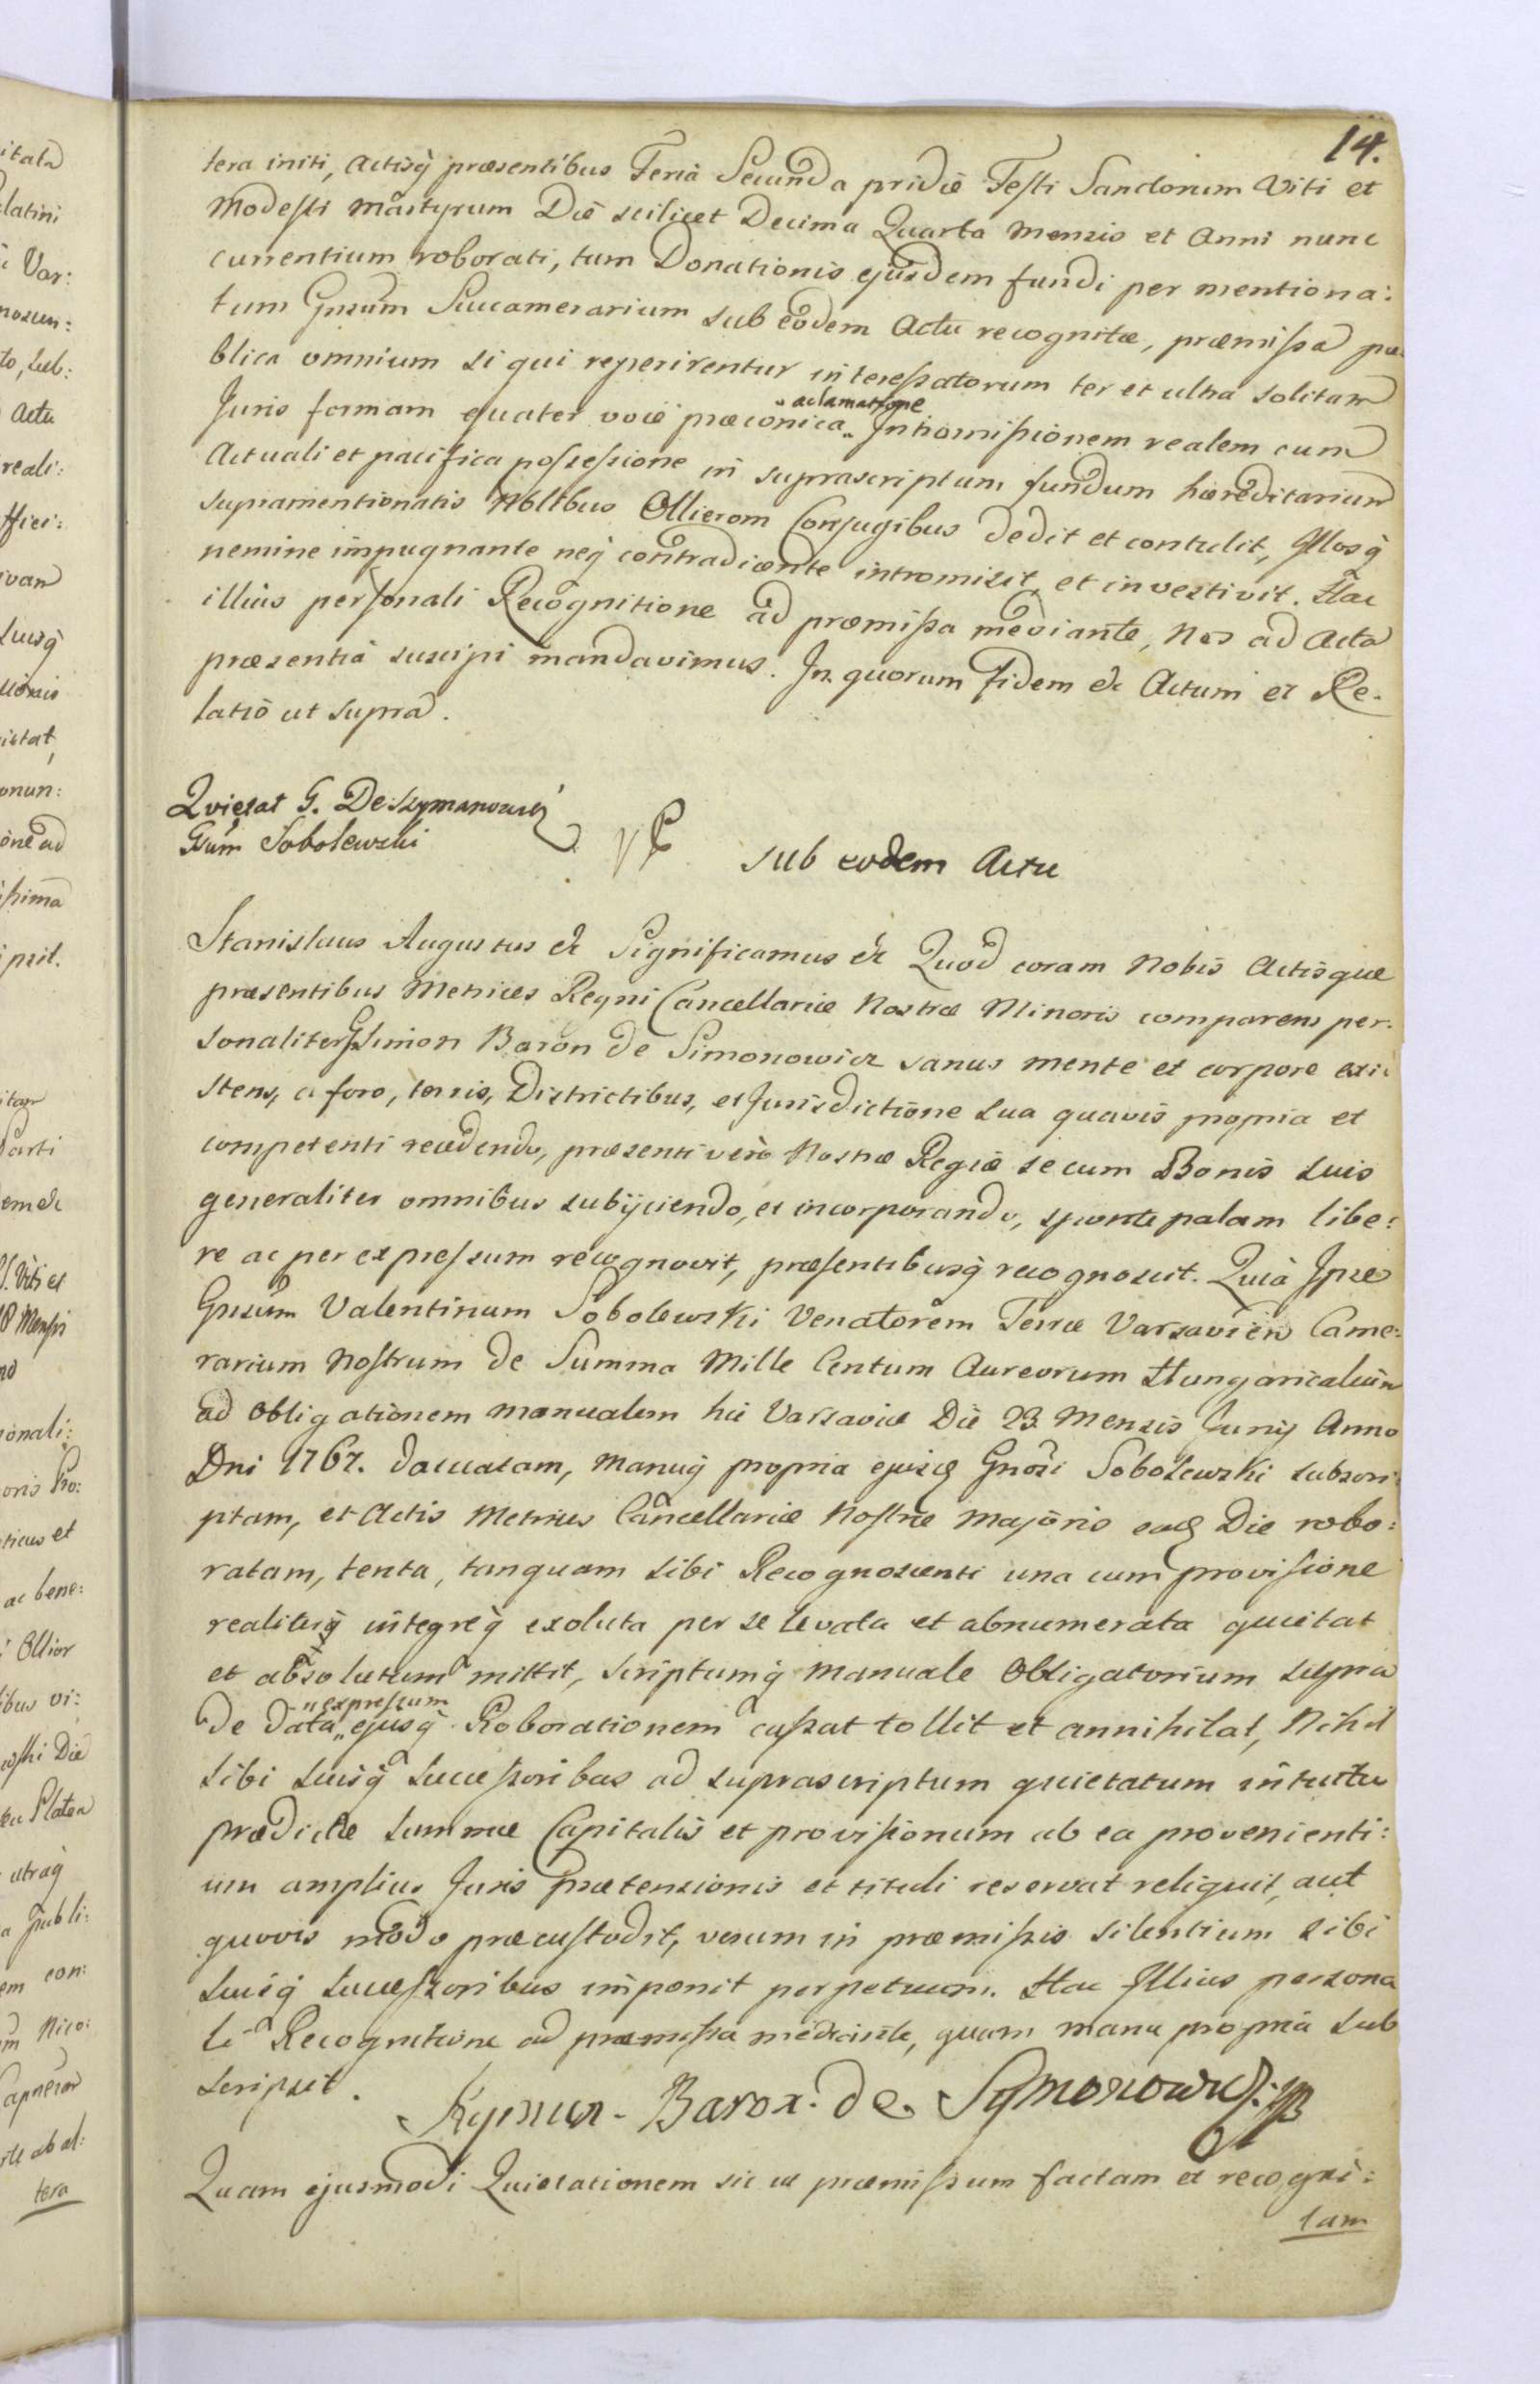 14.
tera initi, Actisq̀ præsentibus Feria Secunda pridie Festi Sanctorum Viti et
Modesti Martyrum Die scilicet Decima Quarta Mensis et Anni nunc
currentium roborati, tum Donationis ejusdem fundi per mentiona:
tum Gnsum Succamerarium sub eodem Actu recognitæ, præmissa pu
blica omnium si qui reperirentur interessatorum ter et ultra solitam
Juris formam quater voce præconica „ Intromissionem realem cum
„ aclamatione
Actuali et pacifica possessione in suprascriptum fundum hæreditarium
supramentionatis Nblibus Ollierom Conjugibus dedit et contulit, Illosq̀
nemine impugnante neq̀ contradicente intromisit, et investivit. Hac
illius personali Recognitione ad præmissa mediante, Nos ad Acta
præsentia suscipi mandavimus. In quorum fidem &c Actum et Re-
latio ut supra.
Quietat G. De Szymanowicz
Gsum Sobolewski
sub eodem Actu
Stanislaus Augustus &c Significamus &c Quod coram Nobis Actisque
præsentibus Metrices Regni Cancellariæ Nostræ Minoris comparens per-
sonaliter Gs Simon Baron de Simonowicz sanus mente et corpore exi:
stens, a foro, terris, Districtibus, et Jurisdictione sua quavis propria et
competenti recedendo, præsenti vero Nostræ Regiæ se cum Bonis suis
generaliter omnibus subijciendo, et incorporando, sponte palam libe:
re ac per expressum recognovit, præsentibusq̀ recognoscit. Quia Ipse
Gnsum Valentinum Sobolewski Venatorem Terræ Varsavien Came:
rarium Nostrum de Summa Mille Centum Aureorum Hungaricalium
ad Obligationem manualem hic Varsaviæ Die 23 Mensis Junij Anno
Dni 1767. datuatam, manuq̀ propria ejusd Gnosi Sobolewski subscri
ptam, et Actis Metrices Cancellariæ Nostræ Majoris ead Die robo:
ratam, tenta, tanquam sibi Recognoscenti una cum provisione
realiterq̀ integreq̀ exoluta per se levata et abnumerata quietat
et absolutum mittit, scriptumq̀ manuale Obligatorium supra
„ expressum
de data „ ejusq̀ Roborationem cassat tollit et annihilat, Nihil
sibi suisq̀ Successoribus ad suprascriptum quietatum intuitu
prædictæ summæ Capitalis et provisionum ab ea provenienti:
um amplius Juris prætensionis et tituli reservat reliquit, aut
quovis modo præcustodit, verum in præmissis silentium sibi
suisq̀ Successoribus imponit perpetuum. Hac Illius persona
li Recognitione ad præmissa mediante, quam manu propria sub
scripsit.
Baron. de Symonowicz
Quam ejusmodi Quietationem sic ut præmissum factam et recogni:
tam